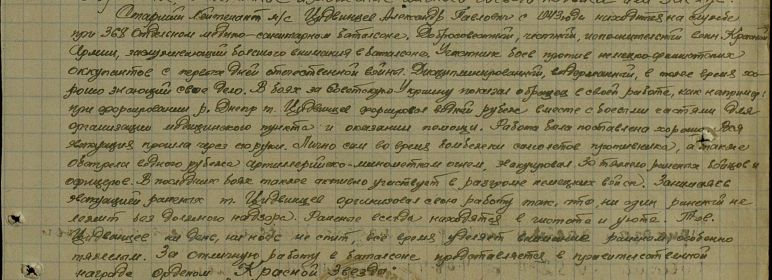 Старший лейтенант м/с Цидвинцев Александр Павлович с 1943 года находится на службе
при 368 Отдельном медико-санитарном батальоне. Добросовестный, честный, исполнительный воин Красной
Армии, заслуживающий большого внимания в батальоне. Участник боев против немецко-фашистских
оккупантов с первых дней отечественной войны. Дисциплинированный, выдержанный, в тоже время хо-
рошо знающий свое дело. В боях за Восточную Украину показал образец в своей работе, как например:
при форсировании р. Днепр т. Цидвинцев форсировал водный рубеж вместе с боевыми частями для
организации медицинского пункта и оказания помощи. Работа была поставлена хорошо. Вся
эвакуация прошла через его руки. Лично сам во время бомбежки самолетов противника, а также
обстрела водного рубежа артиллерийско-минометным огнем, эвакуировал 30 тяжело раненых бойцов и
офицеров. В последних боях также активно участвует в разгроме немецких войск. Занимаясь
эвакуацией раненых т. Цидвинцев организовал свою работу так, что, ни один раненый не
лежит без должного надзора. Раненые всегда находятся в чистоте и уюте. Тов.
Цидвинцев ни день, ни ночь не спит, все время уделяет внимание раненым особенно
тяжелым. За отличную работу в батальоне представляется к правительственной
награде орденом Красной Звезда.